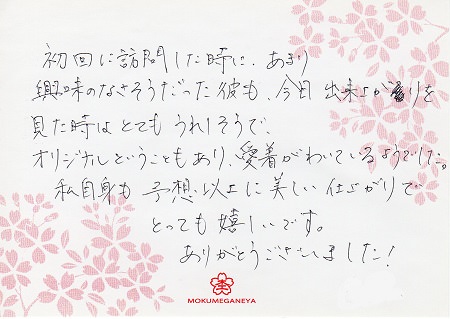 初回に訪問した時に、あまり
興味のなさそうだった彼も、今日 出来上がりを
見た時はとてもうれしそうで、
オリジナルということもあり、愛着がわいているようでした。
私自身も 予想以上に美しい仕上がりで
とっても嬉しいです。
ありがとうございました!
MOKUMEGANEYA